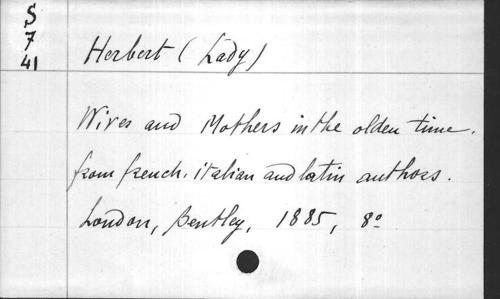 S
7
41
Herbert (Lady)
Wives and Mothers in the olden time.
from french, italian and latin authors.
London, Bentley, 1885, 8º